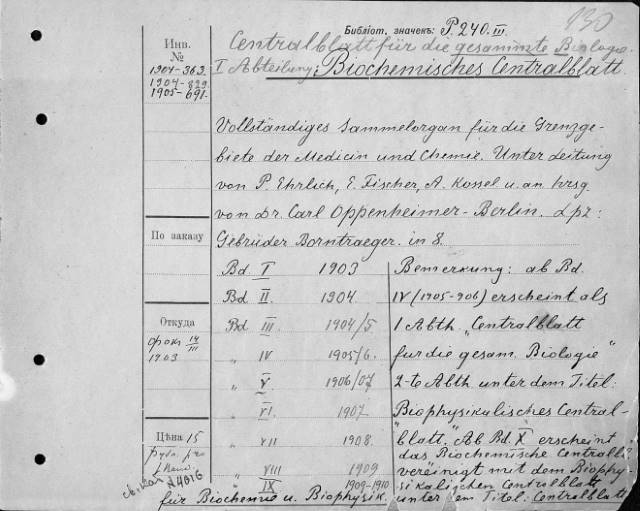 Библіот. значекъ: P. 240. III
130
Centralblatt für die gesammte Biologie.
I Abteilung: Biochemisches Centralblatt.
Инв.
№
1904-363.
1904-829.
1905-691.
Vollständiges Sammelorgan für die Grenzge-
biete der Medicin und Chemie. Unter Leitung
von P. Ehrlich, E. Fischer, A. Kossel u. an. hrsg.
von Dr. Carl Oppenheimer-Berlin. Lpz:
Gebrüder Borntraeger. in 8.
По заказу
Bd. I 1903
Bd. II. 1904.
Bd. III. 1904/5
„ IV 1905/6.
„ V 1906/07
„ VI. 1907
„ VII 1908.
„ VIII 1909
„ IX 1909-1910.
Откуда
14/III
1903
Цѣна 15
A 4016
Bemerkung: ab Bd.
IV (1905-906) erscheint als
1 Abth. „Centralblatt
für die gesam. Biologie"
2-te Abth. unter dem Titel:
Biophysikalisches Central-
blatt." Ab Bd. X erscheint
das Biochemische Centralbl.
vereinigt mit dem Biophy-
sikalischen Centralblatt
unter dem Titel: Centralblatt
für Biochemie u. Biophysik.